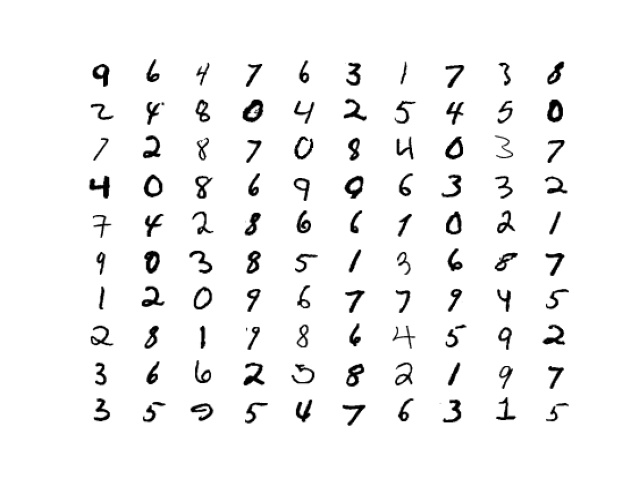 9 6 4 7 6 3 1 7 3 8
2 4 8 0 4 2 5 4 5 0
7 2 8 7 0 8 4 0 3 7
4 0 8 6 9 9 6 3 3 2
7 4 2 8 6 6 1 0 2 1
9 0 3 8 5 1 3 6 8 7
1 2 0 9 6 7 7 9 4 5
2 8 1 9 8 6 4 5 9 2
3 6 6 2 5 8 2 1 9 7
3 5 5 4 7 6 3 1 5